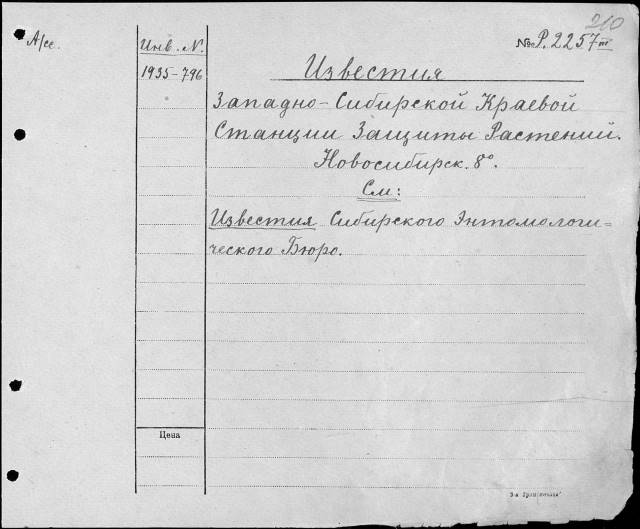 210
А/се.
Инв. N.
№ Р. 2257 III
1935-796
Известия
Западно-Сибирской Краевой
Станции Защиты Растений.
Новосибирск. 8°.
См:
Известия Сибирского Энтомологи=
ческого Бюро.
Цена